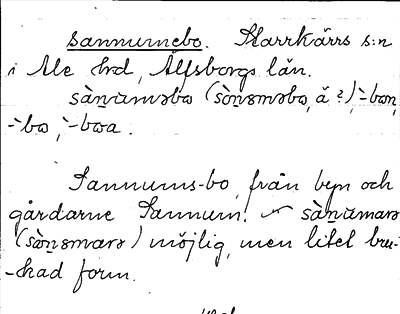 sannumebo. Starrkärrs s:n
i Ale hd, Älfsborgs län.
sàn̲uməbo (sòn̲əməbo, å ?), -̀bon,
-̀bo, -̀boa.
Sannums-bo, från byn och
gårdarne Sannum. sàn̲umarə
(sòn̲əmarə) möjlig, men litet bru-
-kad form.